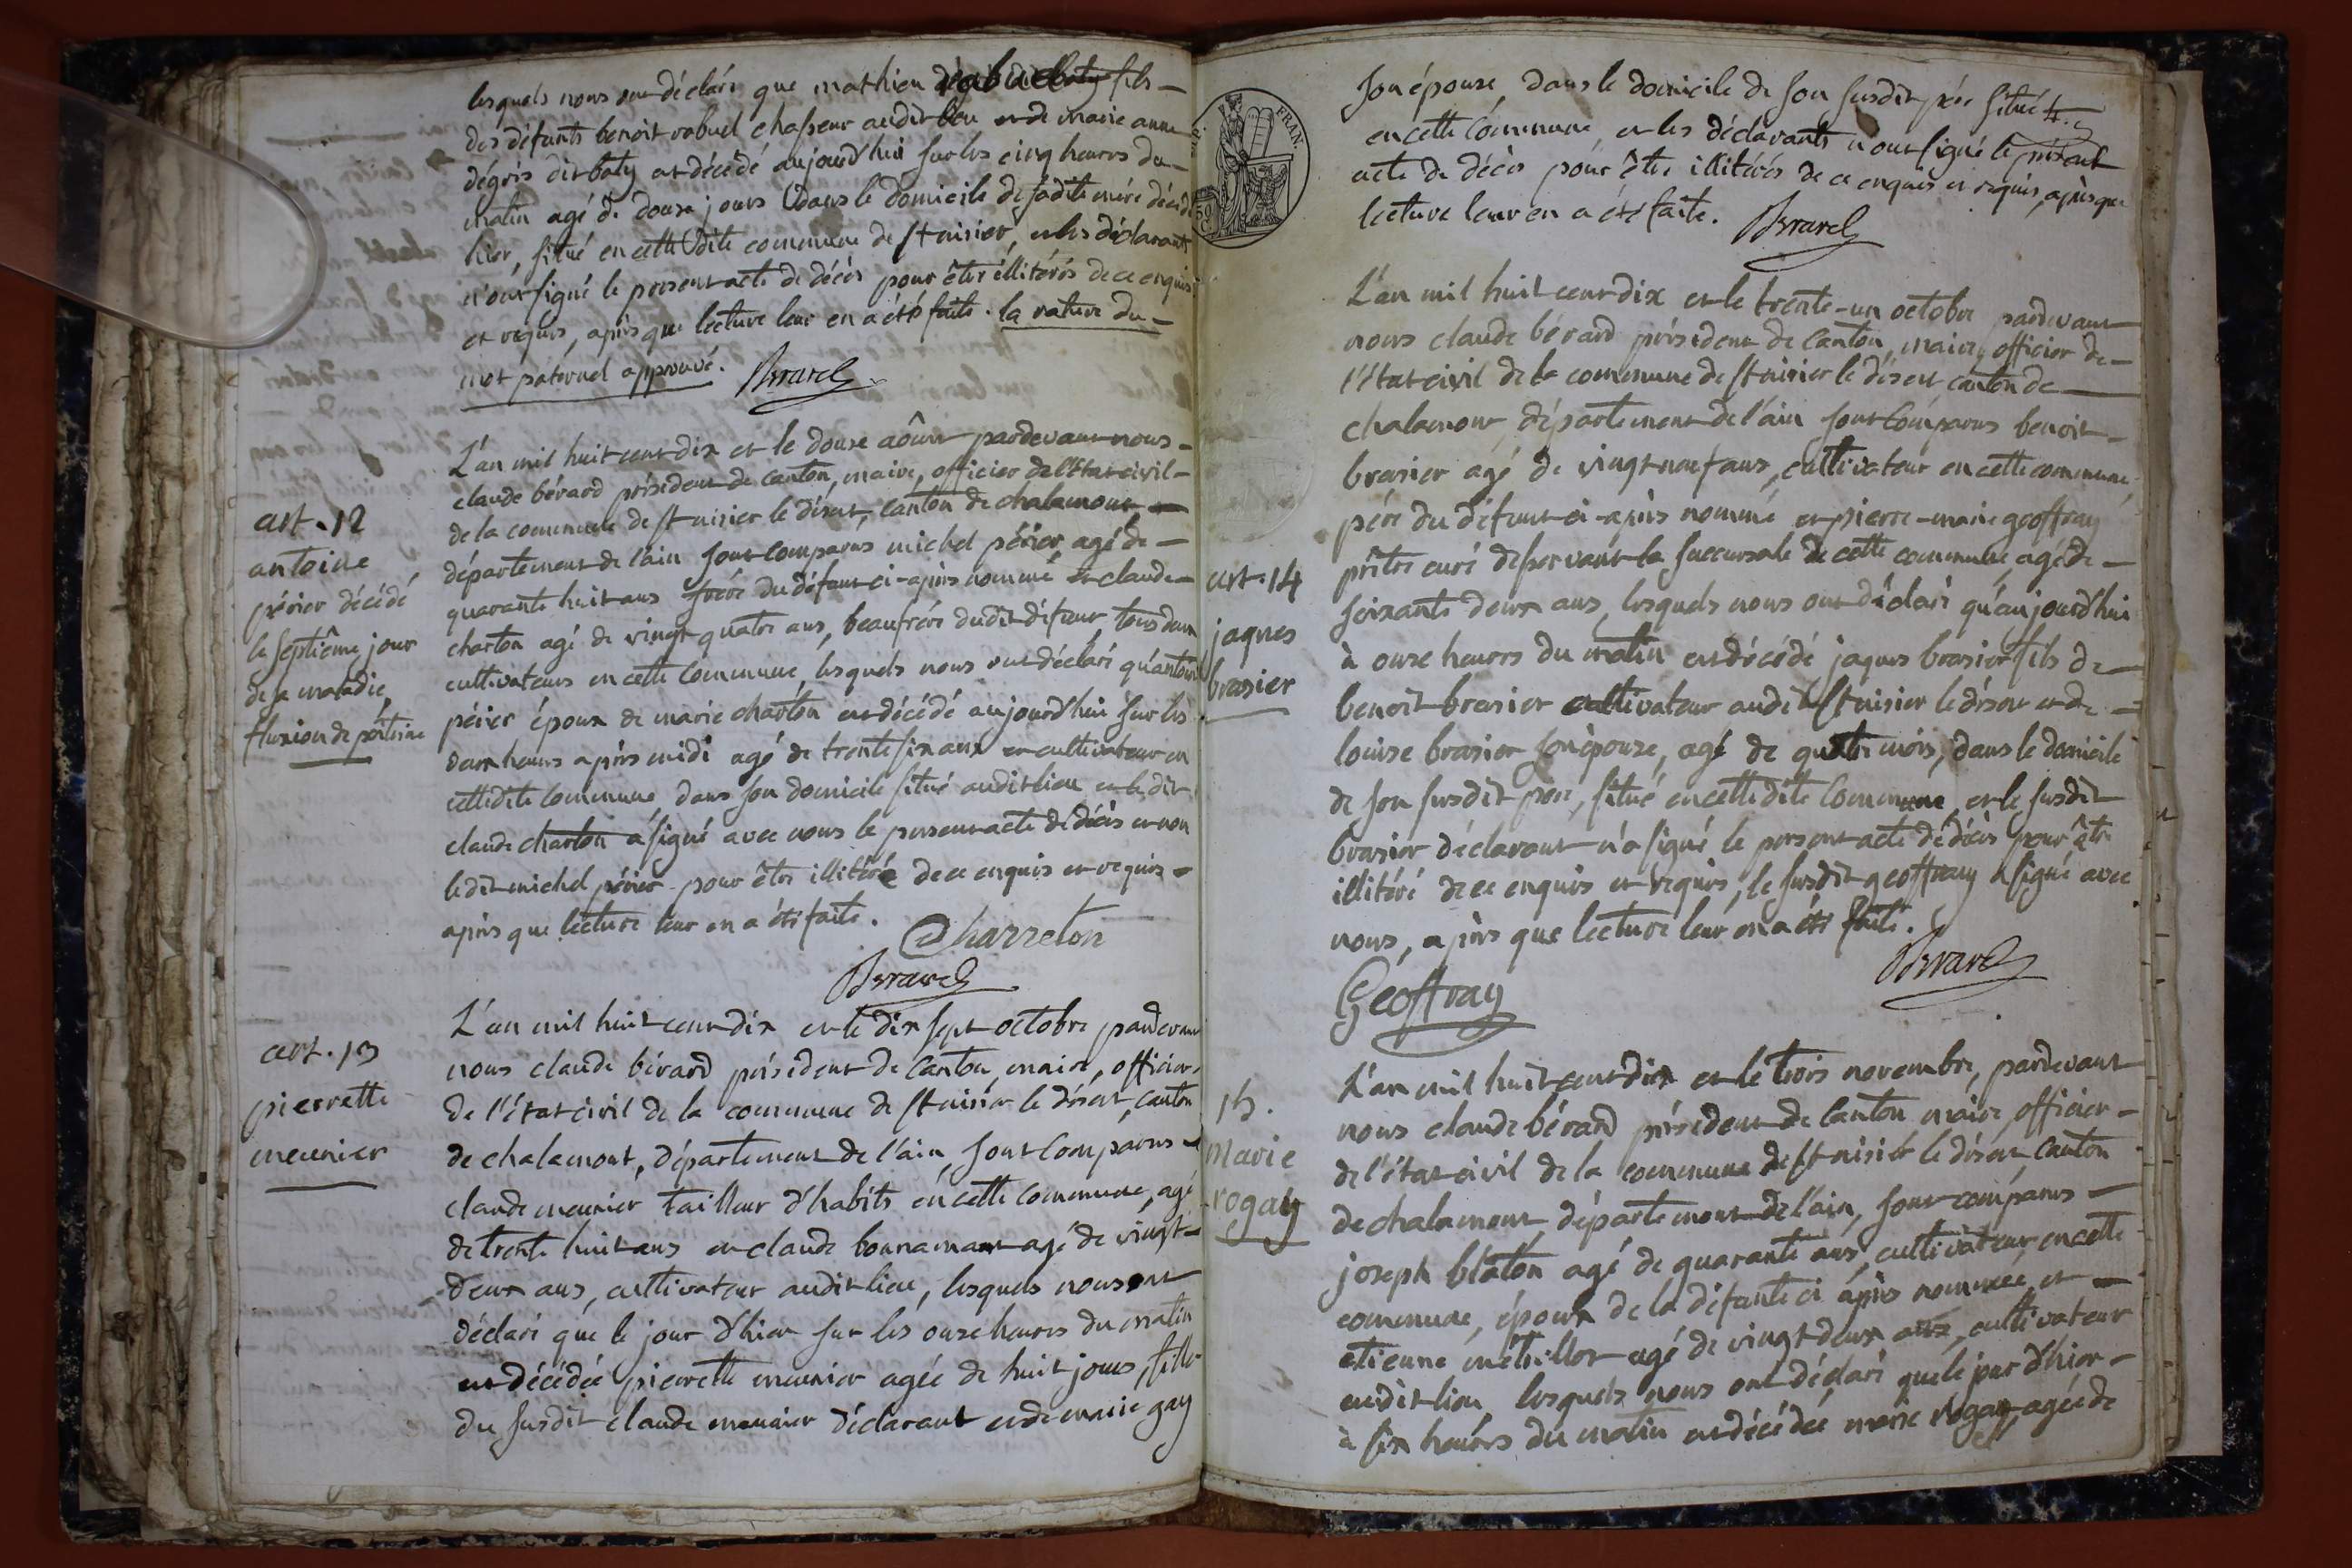 lesquels nous ont déclaré que mathieu rabuel fils
des défunts benoit rabuel chasseur audit lieu et de marie anne
dégris dit baty est décédé aujourd'hui sur les cinq heures du
matin agé de douze jours dans le domicile de sadite mére décédé
hier, situé en cette dite commune de st nisier, et les déclarants
n'ont signé le present acte de décès pour être illitérés de ce enquis
et requis, après que lecture leur en a été faite. la rature du
mot paternel approuvé. Berard
L'an mil huit cent dix et le douze aôust pardevant nous
claude bérard président de canton, maire, officier de l'état civil
de la commune de st nisier le désert, canton de chalamont
département de l'ain sont comparus michel périer, agé de
quarante huit ans frére du défunt ci-après nommé et claude
charton agé de vingt quatre ans, beaufrére dudit défunt, tous deux
cultivateurs en cette commune, lesquels nous ont déclaré qu'antoine
périer époux de marie charton est décédé aujourd'hui sur les
deux heures après midi agé de trente six ans et cultivateur en
cette dite commune, dans son domicile situé audit lieu et le dit
claude charton a signé avec nous le present acte de décès et non
ledit michel périer pour être illitéré de ce enquis et requis
après que lecture leur en a été faite. Charreton
Berard
art. 12
antoine
périer décédé
le septiême jour
de sa maladie,
fluxion de poitrine
L'an mil huit cent dix et le dix sept octobre pardevant
nous claude bérard président de canton, maire, officier
de l'état civil de la commune de st nisier le désert, canton
de chalamont, département de l'ain, sont comparus
claude meunier tailleur d'habits en cette commune, agé
de trente huit ans et claude bonnamant agé de vingt
deux ans, cultivateur audit lieu, lesquels nous ont
déclaré que le jour d'hier sur les onze heures du matin
est décédée pierrette meunier agée de huit jours, fille
du susdit claude meunier déclarant et de marie gay
art. 13
pierrette
meunier
son épouse, dans le domicile de son susdit pére situé
en cette commune, et les déclarants n'ont signé le présent
acte de décès pour être illitérés de ce enquis et requis, après que
lecture leur en a été faite. Berard
FRAN.
L'an mil huit cent dix et le trente-un octobre pardevant
nous claude bérard président de canton, maire, officier de
l'état civil de la commune de st nisier le désert canton de
chalamont, département de l'ain sont comparus benoit
brasier agé de vingt neuf ans, cultivateur en cette commune,
pére du défunt ci-après nommé et pierre-marie geoffray
prêtre curé desservant la succursale de cette commune, agé de
soixante deux ans, lesquels nous ont déclaré qu'aujourd'hui
à onze heures du matin est décédé jaques brasier fils de
benoit brasier cultivateur audit st nisier le désert et de
louise brasier son épouse, agé de quatre mois, dans le domicile
de son susdit pére, situé en cette dite commune, et le susdit
brasier déclarant n'a signé le present acte de décès pour être
illitéré de ce enquis et requis, le susdit geoffray a signé avec
nous, après que lecture leur en a été faite.
Berard
Geoffray
art. 14
jaques
brasier
L'an mil huit cent dix et le trois novembre, pardevant
nous claude bérard président de canton maire, officier
de l'état civil de la commune de st nisier le désert, canton
de chalamont, département de l'ain, sont comparus
joseph blaton agé de quarante ans, cultivateur en cette
commune, époux de la défunte ci après nommée, et
etienne métrillot agé de vingt deux ans, cultivateur
audit lieu, lesquels nous ont déclaré que le jour d'hier
à six heures du matin est décédée marie rogay, agée de
15.
Marie
rogay